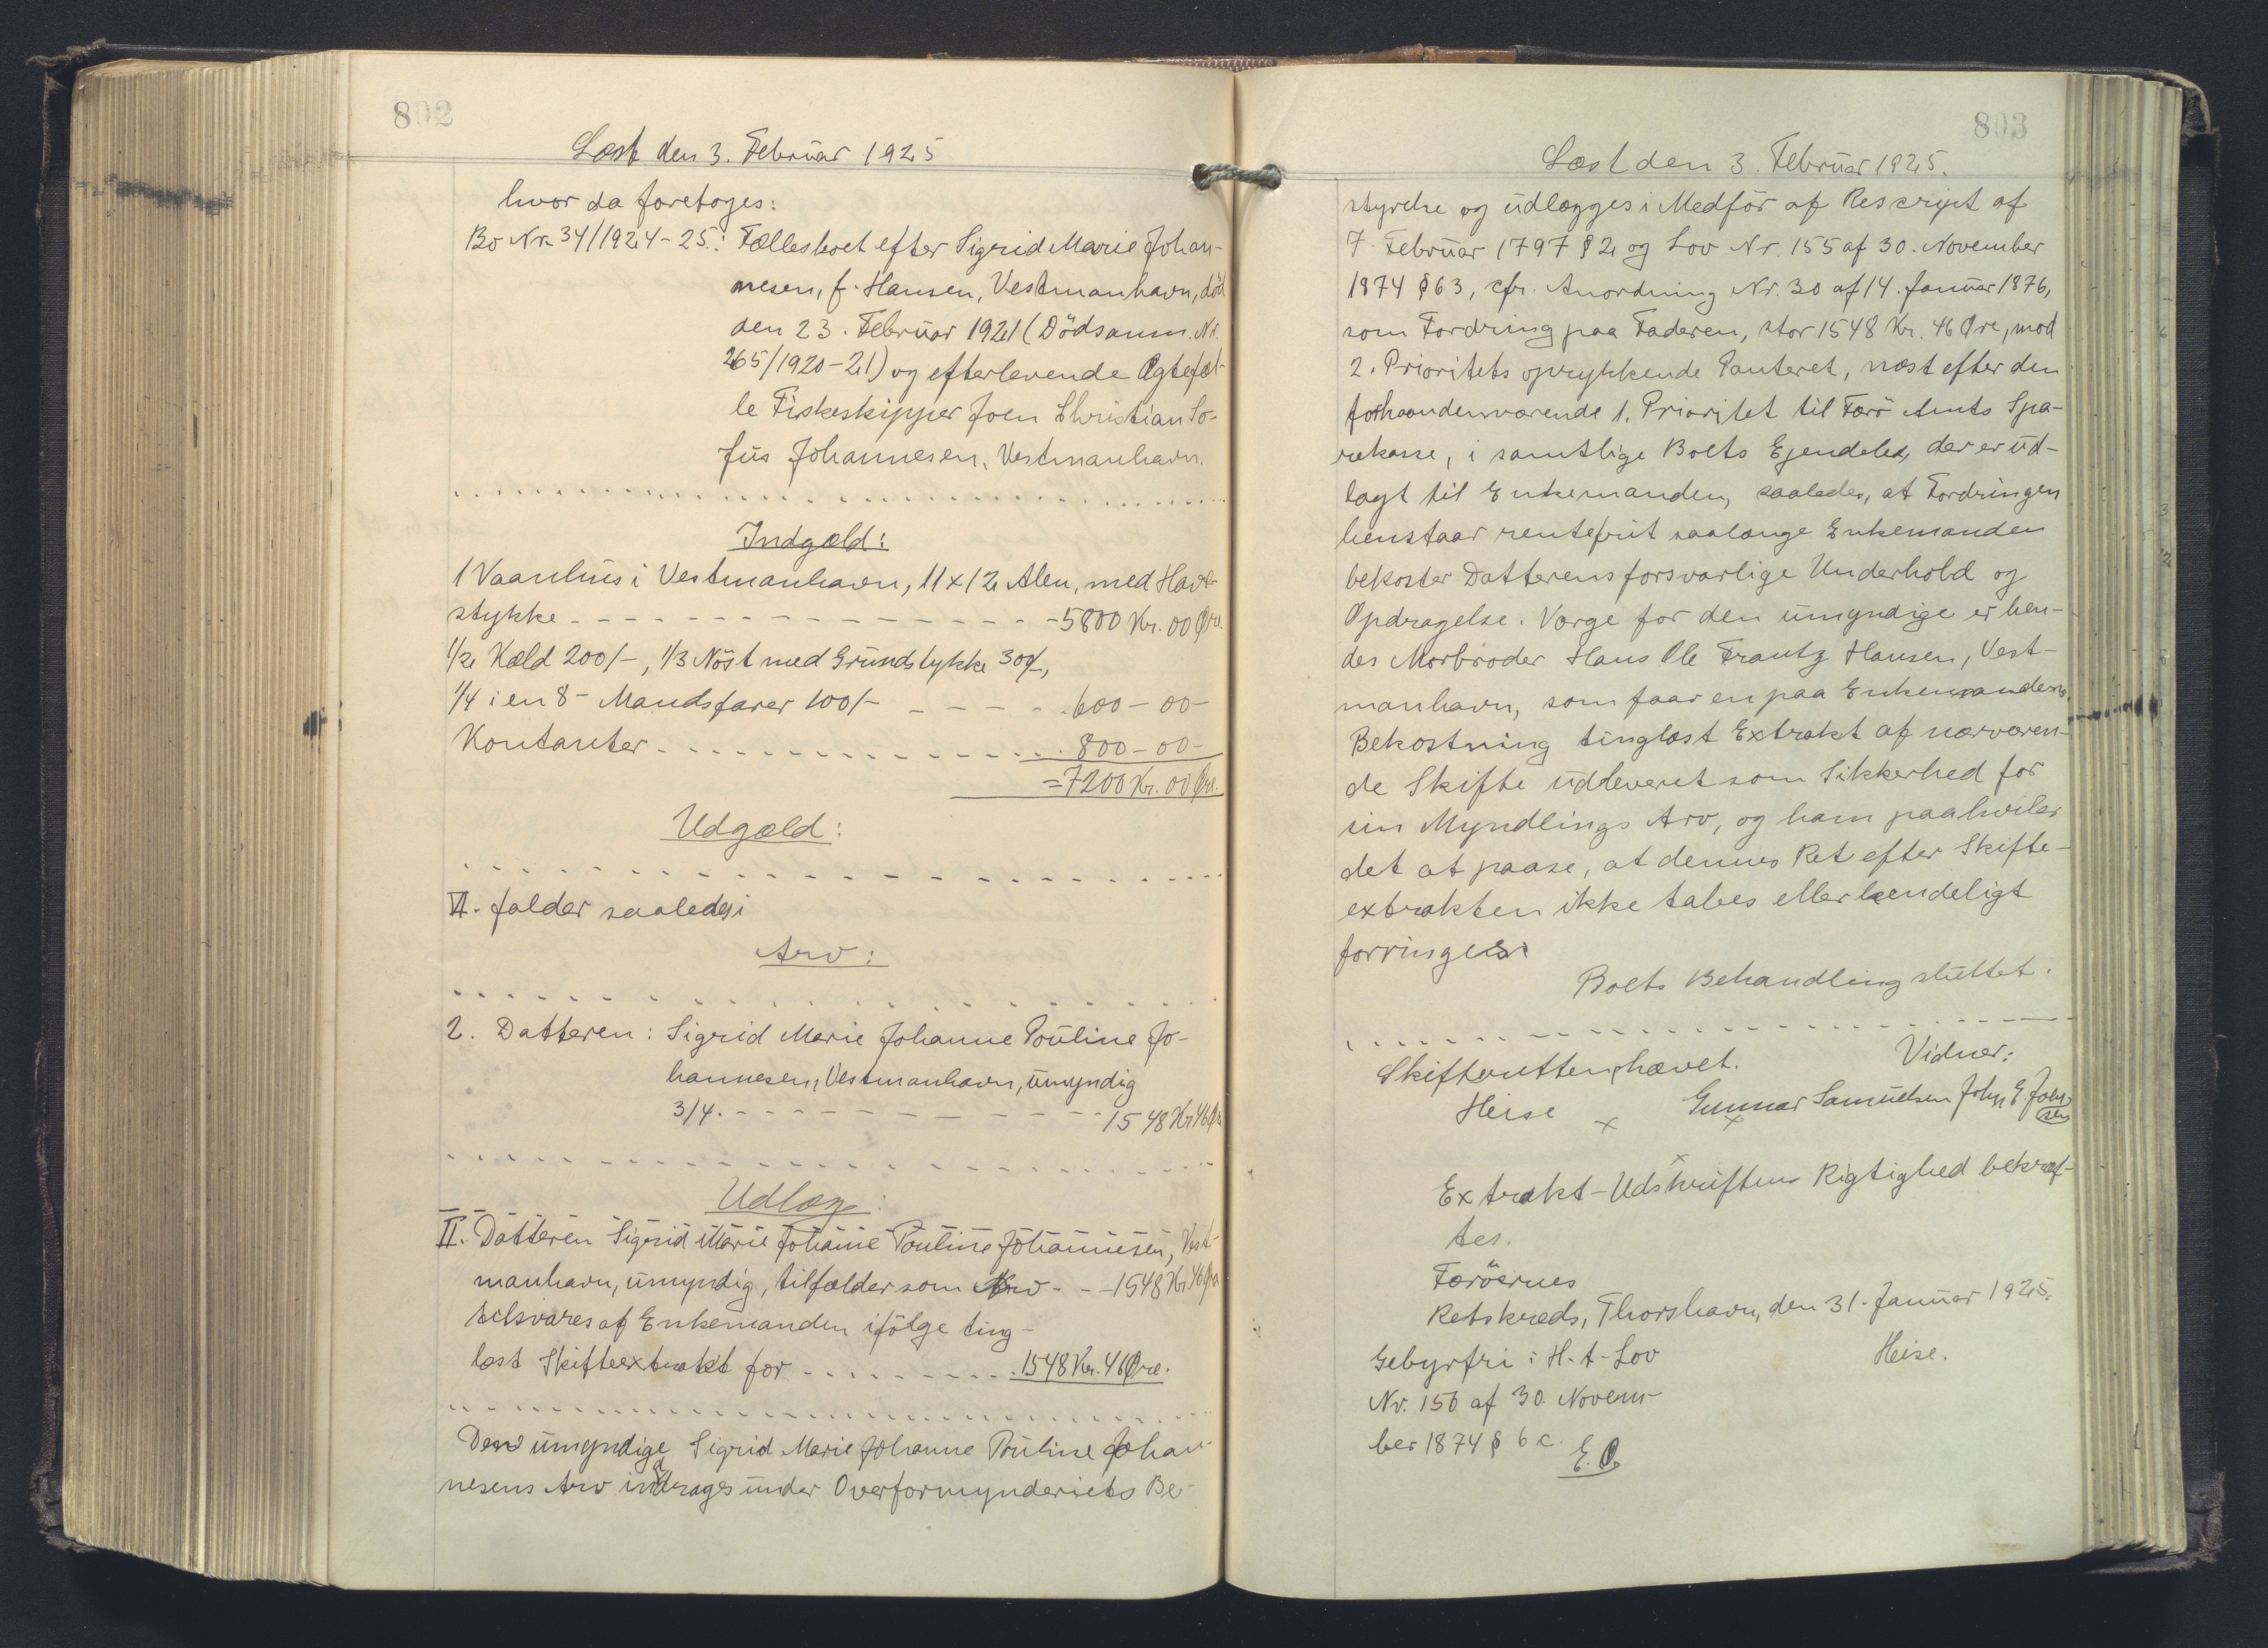 802
Læst den 3. Februar 1925
hvor da foretoges:
Bo Nr. 34/1924-25: Fællesboet efter Sigrid Marie Johan-
nesen, f. Hansen, Vestmanhavn, död
den 23. Februar 1921 (Dödsanm. Nr.
265/1920-21) og efterlevende Ægtefæl-
le Fiskeskipper Joen Christian So-
fus Johannesen, Vestmanhavn.
Indgæld:
1 Vaanhus i Vestmanhavn, 11 x 12 Alen, med Have-
stykke - 5800 Kr. 00 Øre.
1/2 Kæld 200/-, 1/3 Nöst med Grundstykke 300/-,
1/4 i en 8- Mandsfarer 100/- - 600-00-
Kontanter - 800-00-
=7200 Kr. 00 Øre.
Udgæld:
VI. falder saaledes i
Arv:
2. Datteren: Sigrid Marie Johanne Pouline Jo-
hannesen, Vestmanhavn, umyndig
3/4. - 1548 Kr 46 Ør
Udlæg:
II. Datteren Sigrid Marie Johanne Pouline Johannesen, Vest-
manhavn, umyndig, tilfalder som Arv - - 1548 Kr. 46 Øre
tilsvares af Enkemanden ifölge ting-
læst Skifteextrakt for - 1548 Kr. 46 Øre.
Den umyndige Sigrid Marie Johanne Pouline Johan-
nesens Arv inddrages under Overformynderiets Be-
803
Læst den 3. Februar 1925.
styrelse og udlægges i Medför af Rescript af
7. Februar 1797 § 2 og Lov Nr. 155 af 30. November
1874 § 63, cfr. Anordning Nr. 30 af 14. Januar 1876,
som Fordring paa Faderen, stor 1548 Kr. 46 Øre, mod
2. Prioritets oprykkende Panteret, næst efter den
forhaandenværende 1. Prioritet til Færö Amts Spa-
rekasse, i samtlige Boets Ejendele, der er ud-
lagt til Enkemanden, saaledes, at Fordringen
henstaar rentefrit saalænge Enkemanden
bekoster Datterens forsvarlige Underhold og
Opdragelse. Værge for den umyndige er hen-
des Morbroder Hans Ole Frantz Hansen, Vest-
manhavn, som faar en paa Enkemandens
Bekostning tinglæst Extrakt af nærværen-
de Skifte udleveret som Sikkerhed for
sin Myndlings Arv, og ham paahviler
det at paase, at dennes Ret efter Skifte-
extrakten ikke tabes eller kendeligt
forringes.
Boets Behandling sluttet.
Skifteretten hævet. Vidner:
Heise Gunnar Samuelsen John E. Johan
sen
Extrakt-Udskriftens Rigtighed bekræf-
tes.
Færöernes
Retskreds, Thorshavn, den 31. Januar 1925.
Gebyrfri i H.t. Lov Heise.
Nr. 156 af 30. Novem-
ber 1874 § 6 c.
E. O.